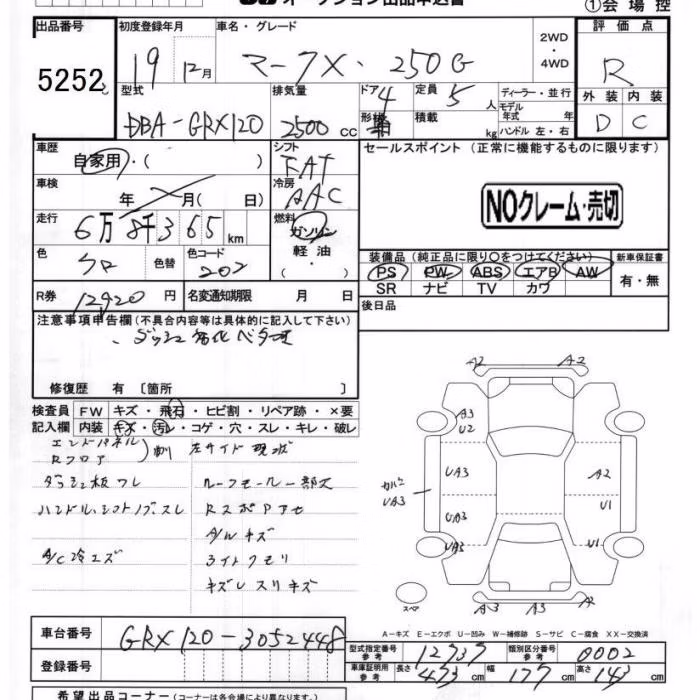 オークション出品申込書
①会場控
出品番号 初度登録年月 車名・グレード 2WD・4WD 評価点
5252 19 12月 マークX・250G R
型式 排気量 ドア 定員 ディーラー・並行 外装 内装
DBA-GRX120 2500cc 4 5人 モデル年式 年 D C
形状 積載 kg ハンドル 左・右
車歴 シフト セールスポイント (正常に機能するものに限ります)
自家用・( ) FAT
車検 冷房
年 月( 日) AAC NOクレーム・売切
走行 燃料
6万8千365km ガソリン
軽油
色 色替 色コード 装備品 (純正品に限り○をつけてください) 新車保証書
クロ 202 PS PW ABS エアB AW 有・無
SR ナビ TV カワ
R券 12920円 名変通知期限 月 日 後日品
注意事項申告欄 (不具合内容等は具体的に記入して下さい)
、ダッシュ劣化ベタ
修復歴 有 [箇所 ]
検査員 FW キズ・飛石・ヒビ割・リペア跡・×要
記入欄 内装 キズ・汚レ・コゲ・穴・スレ・キレ・破レ
エンドパネル
Rフロア
左サイド現状
ダッシュ板ワレ ルーフモール一部欠
ハンドル、シフトノブ、スレ Rスポアセ
A/Wキズ
A/C冷エズ ライトクモリ
キズレスリキズ
A2 A2
A3
U2
UA3 A2
UA3
UA3 U1
UA3 U1
スペア A3 A3 A2
A-キズ E-エクボ U-凹み W-補修跡 S-サビ C-腐食 XX-交換済
車台番号 GRX120-3052448
登録番号
型式指定番号 参考 12737 類別区分番号 参考 0002
車庫証明用 参考 長さ 473cm 幅 177cm 高さ 143cm
希望出品コーナー (コーナーは各会場により異なります。)